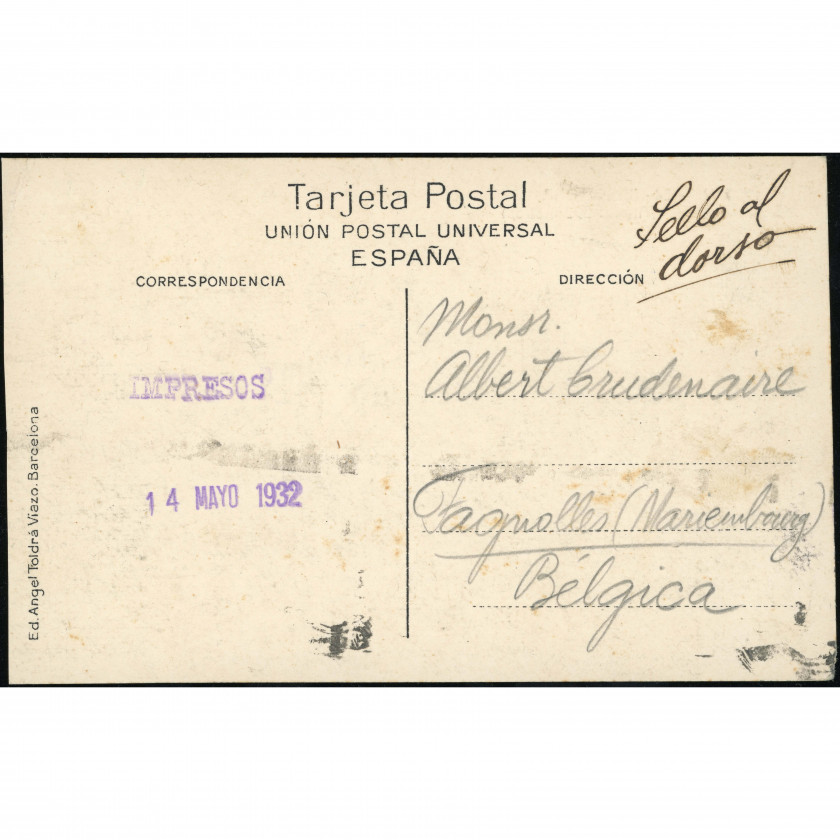 Tarjeta Postal
UNIÓN POSTAL UNIVERSAL
ESPAÑA
Sello al
dorso
CORRESPONDENCIA
DIRECCIÓN
IMPRESOS
14 MAYO 1932
Ed. Angel Toldrá Viazo. Barcelona
Monsr.
Albert Crudenaire
Fagnolles (Mariembourg)
Bélgica